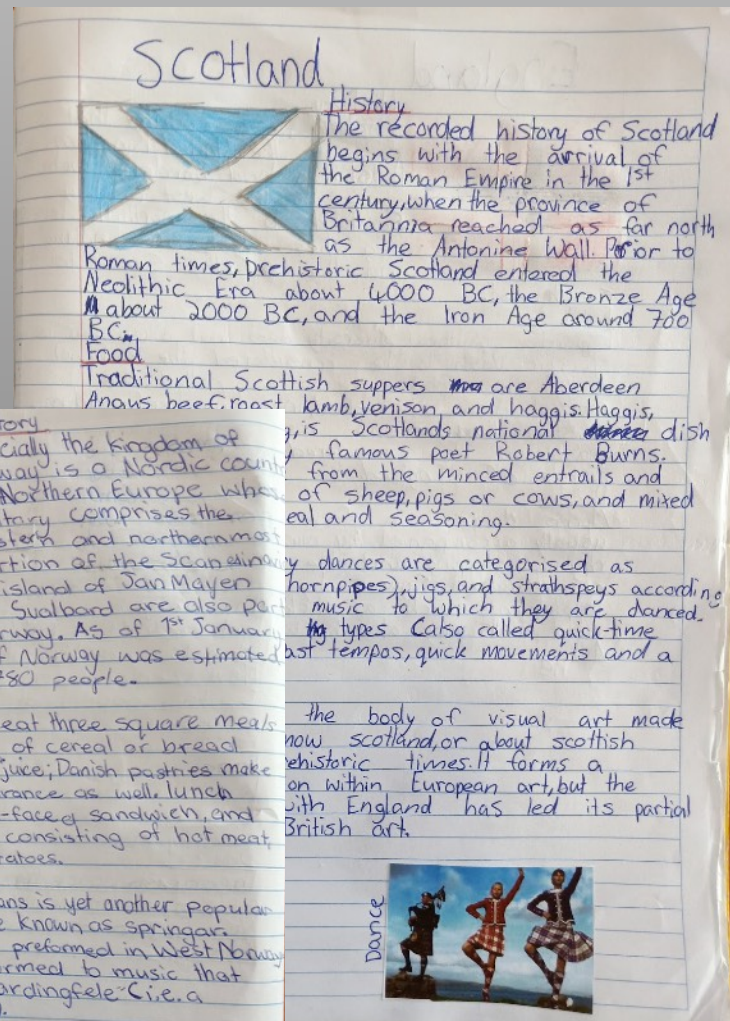 Scotland
History
The recorded history of Scotland
begins with the arrival of
the Roman Empire in the 1st
century, when the province of
Britannia reached as far north
as the Antonine Wall. Prior to
Roman times, prehistoric Scotland entered the
Neolithic Era about 4000 BC, the Bronze Age
about 2000 BC, and the Iron Age around 700
BC.
Food
Traditional Scottish suppers are Aberdeen
Angus beef, roast lamb, venison and haggis. Haggis,
is Scotlands national dish
famous poet Robert Burns.
from the minced entrails and
of sheep, pigs or cows, and mixed
eal and seasoning.
y dances are categorised as
hornpipes), jigs, and strathspeys according
music to which they are danced.
types (also called quick-time
ast tempos, quick movements and a
the body of visual art made
now scotland, or about scottish
ehistoric times. It forms a
on within European art, but the
with England has led its partial
British art.
Dance
tory
cially the kingdom of
way is a Nordic count
Northern Europe whos
itory comprises the
stern and northernmost
rtion of the Scandinav
island of Jan Mayen
Svalbard are also part
rway. As of 1st January
f Norway was estimated
80 people.
eat three square meals
of cereal or bread
juice; Danish pastries make
rance as well. lunch
-faced sandwich, and
consisting of hot meat,
tatoes.
ans is yet another popular
e known as springar.
preformed in West Norway
ormed to music that
ardingfele - (i.e. a
).